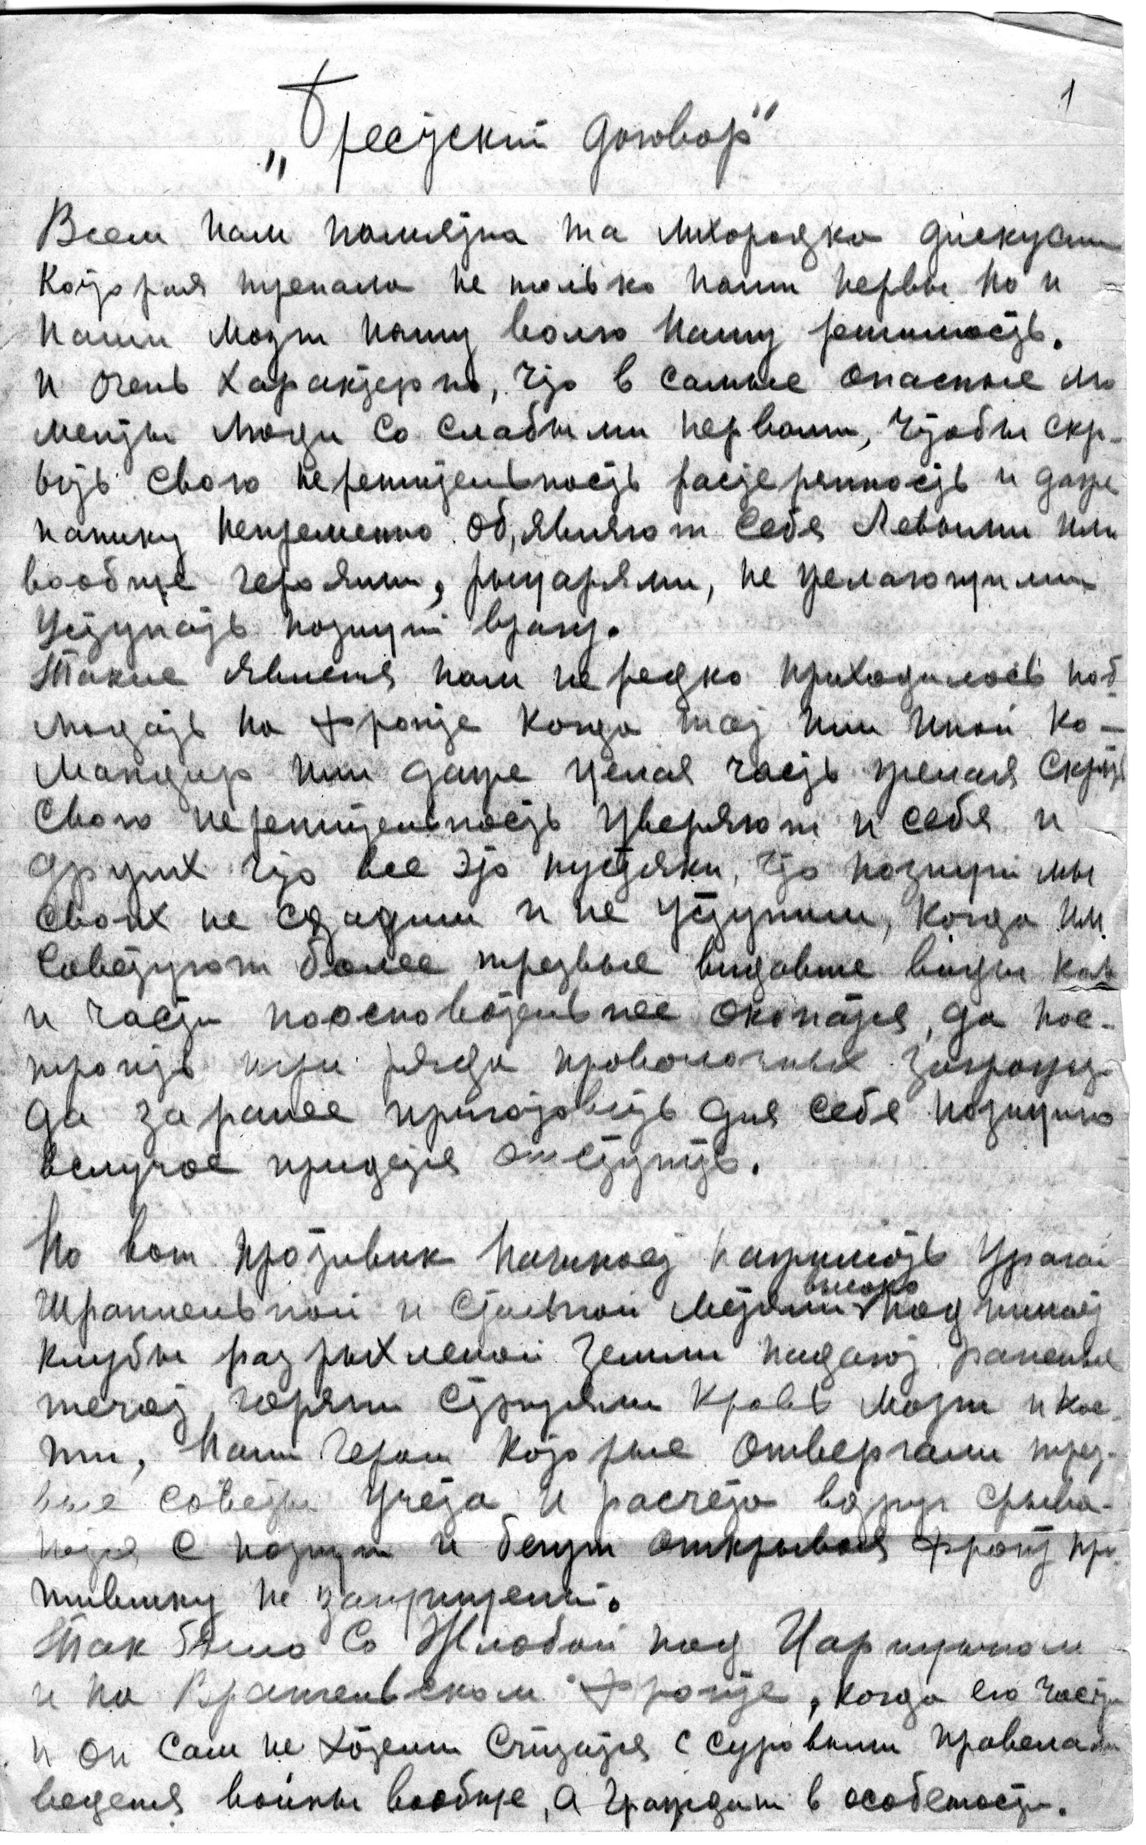 1
„Брестский договор"
Всем нам памятна та лихорадка дискусии
которая трепала не только наши нервы но и
наши мозги нашу волю нашу решимость.
И очень характерно, что в самые опасные мо
менты люди со слабыми нервами, чтобы скр-
ыть свою нерешительность растерянность и даже
панику непременно об,являют себя Левыми или
вообще героями, рыцарями, не желающими
уступать позиций врагу.
Такие явления нам не редко приходилось наб
людать на фронте когда тот или иной ко-
мандир или даже целая часть желая скрыть
свою нерешительность уверяют и себя и
других что все это пустяки, что позиций мы
своих не сдадим и не уступим, когда им
советуют более трезвые видавшие виды ком
и части поосновательнее окопатся, да пос-
троить три ряда проволочных загражд.
да заранее приготовить для себя позицию
вслучае придется отступть.
Но вот противник начинает направлять ураган
шрапнельной и стальной метели высоко поднимает
клубы разрыхленой земли падают раненые
течет горячи струями кровь мозги и кос-
ти, наши герои которые отвергали трез-
вые советы учета и расчета вдруг срыва-
ются с позиций и бегут открывая фронт про
тивнику не защищений.
Так было со Жлобой под Царицыном
и на Врангельском фронте, когда его части
и он сам не хотели считатся с суровыми правелами
ведения войны вообще, а гражданс в особености.